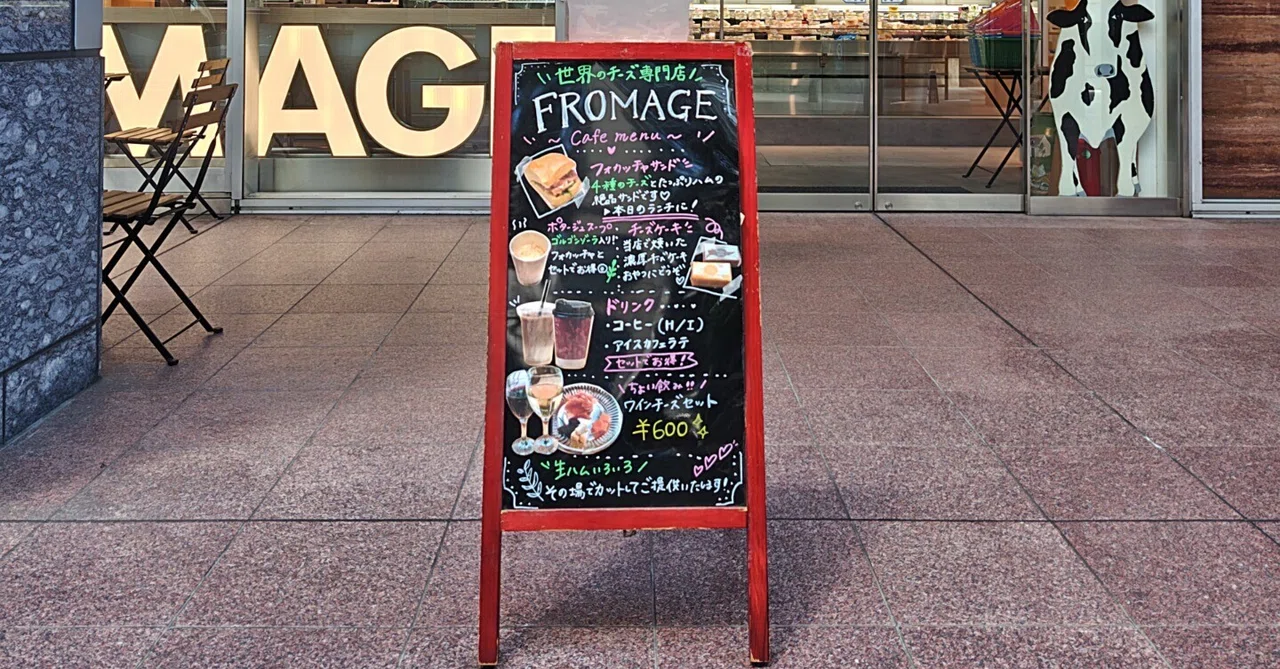 MAGE
世界のチーズ専門店
FROMAGE
~ Cafe menu ~
フォカッチャサンド
4種のチーズとたっぷりハムの
絶品サンドです♡
▶本日のランチに!
ポタージュスープ
ゴルゴンゾーラ入り!
フォカッチャと
セットでお得
チーズケーキ
当店で焼いた
濃厚チーズケーキ
おやつにどうぞ
ドリンク
・コーヒー(H/I)
・アイスカフェラテ
セットでお得!
ちょい飲み!!
ワインチーズセット
¥600
生ハムいろいろ
その場でカットしてご提供いたします!